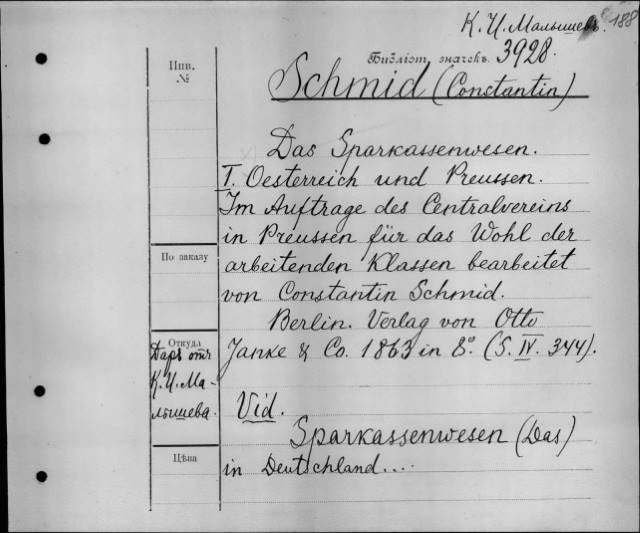 К. И. Малышевъ. 188
Библіот. значекъ. 3928.
Schmid (Constantin)
Инв.
№
Das Sparkassenwesen.
I. Oesterreich und Preussen.
Im Auftrage des Centralvereins
in Preussen für das Wohl der
arbeitenden Klassen bearbeitet
von Constantin Schmid.
Berlin. Verlag von Otto
Janke & Co. 1863 in 8º. (S. IV. 344).
По заказу
Откуда
Даръ отъ
К. И. Ма-
лышева.
Vid.
Sparkassenwesen (Das)
in Deutschland....
Цѣна